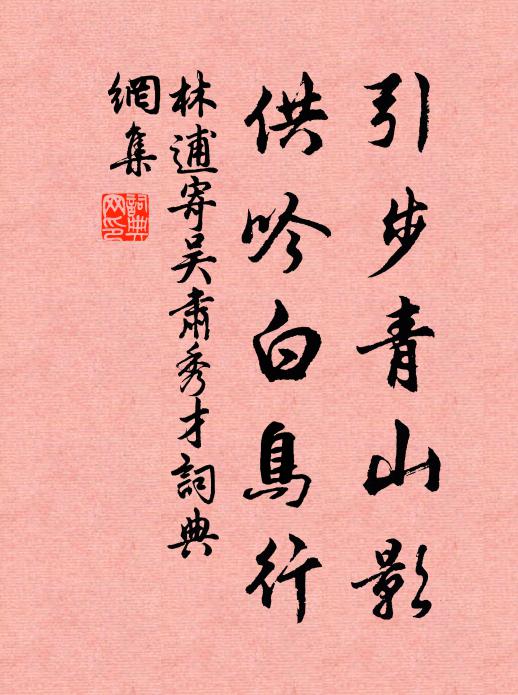 引步青山影
供吟白鳥行
林逋寄吴肅秀才詞典
網集
詞典网印